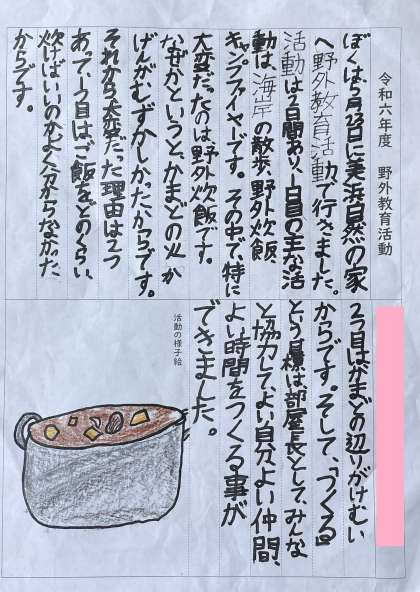 令和六年度 野外教育活動
ぼくは5月23日に美浜自然の家
へ野外教育活動で行きました。
活動は2日間あり、1日目の主な活
動は、海岸の散歩、野外炊飯、
キャンプファイヤーです。その中で、特に
大変だったのは野外炊飯です。
なぜかというと、かまどの火か
げんがむずかしかったからです。
それから大変だった理由は2つ
あって、1つ目はご飯をどのくらい、
炊けばいいのかよく分からなかった
からです。
2つ目はかまどの辺りがけむい
からです。そして、「つくる」
という目標は部屋長として、みんな
と協力して、よい自分、よい仲間、
よい時間をつくる事が
できました。
活動の様子絵